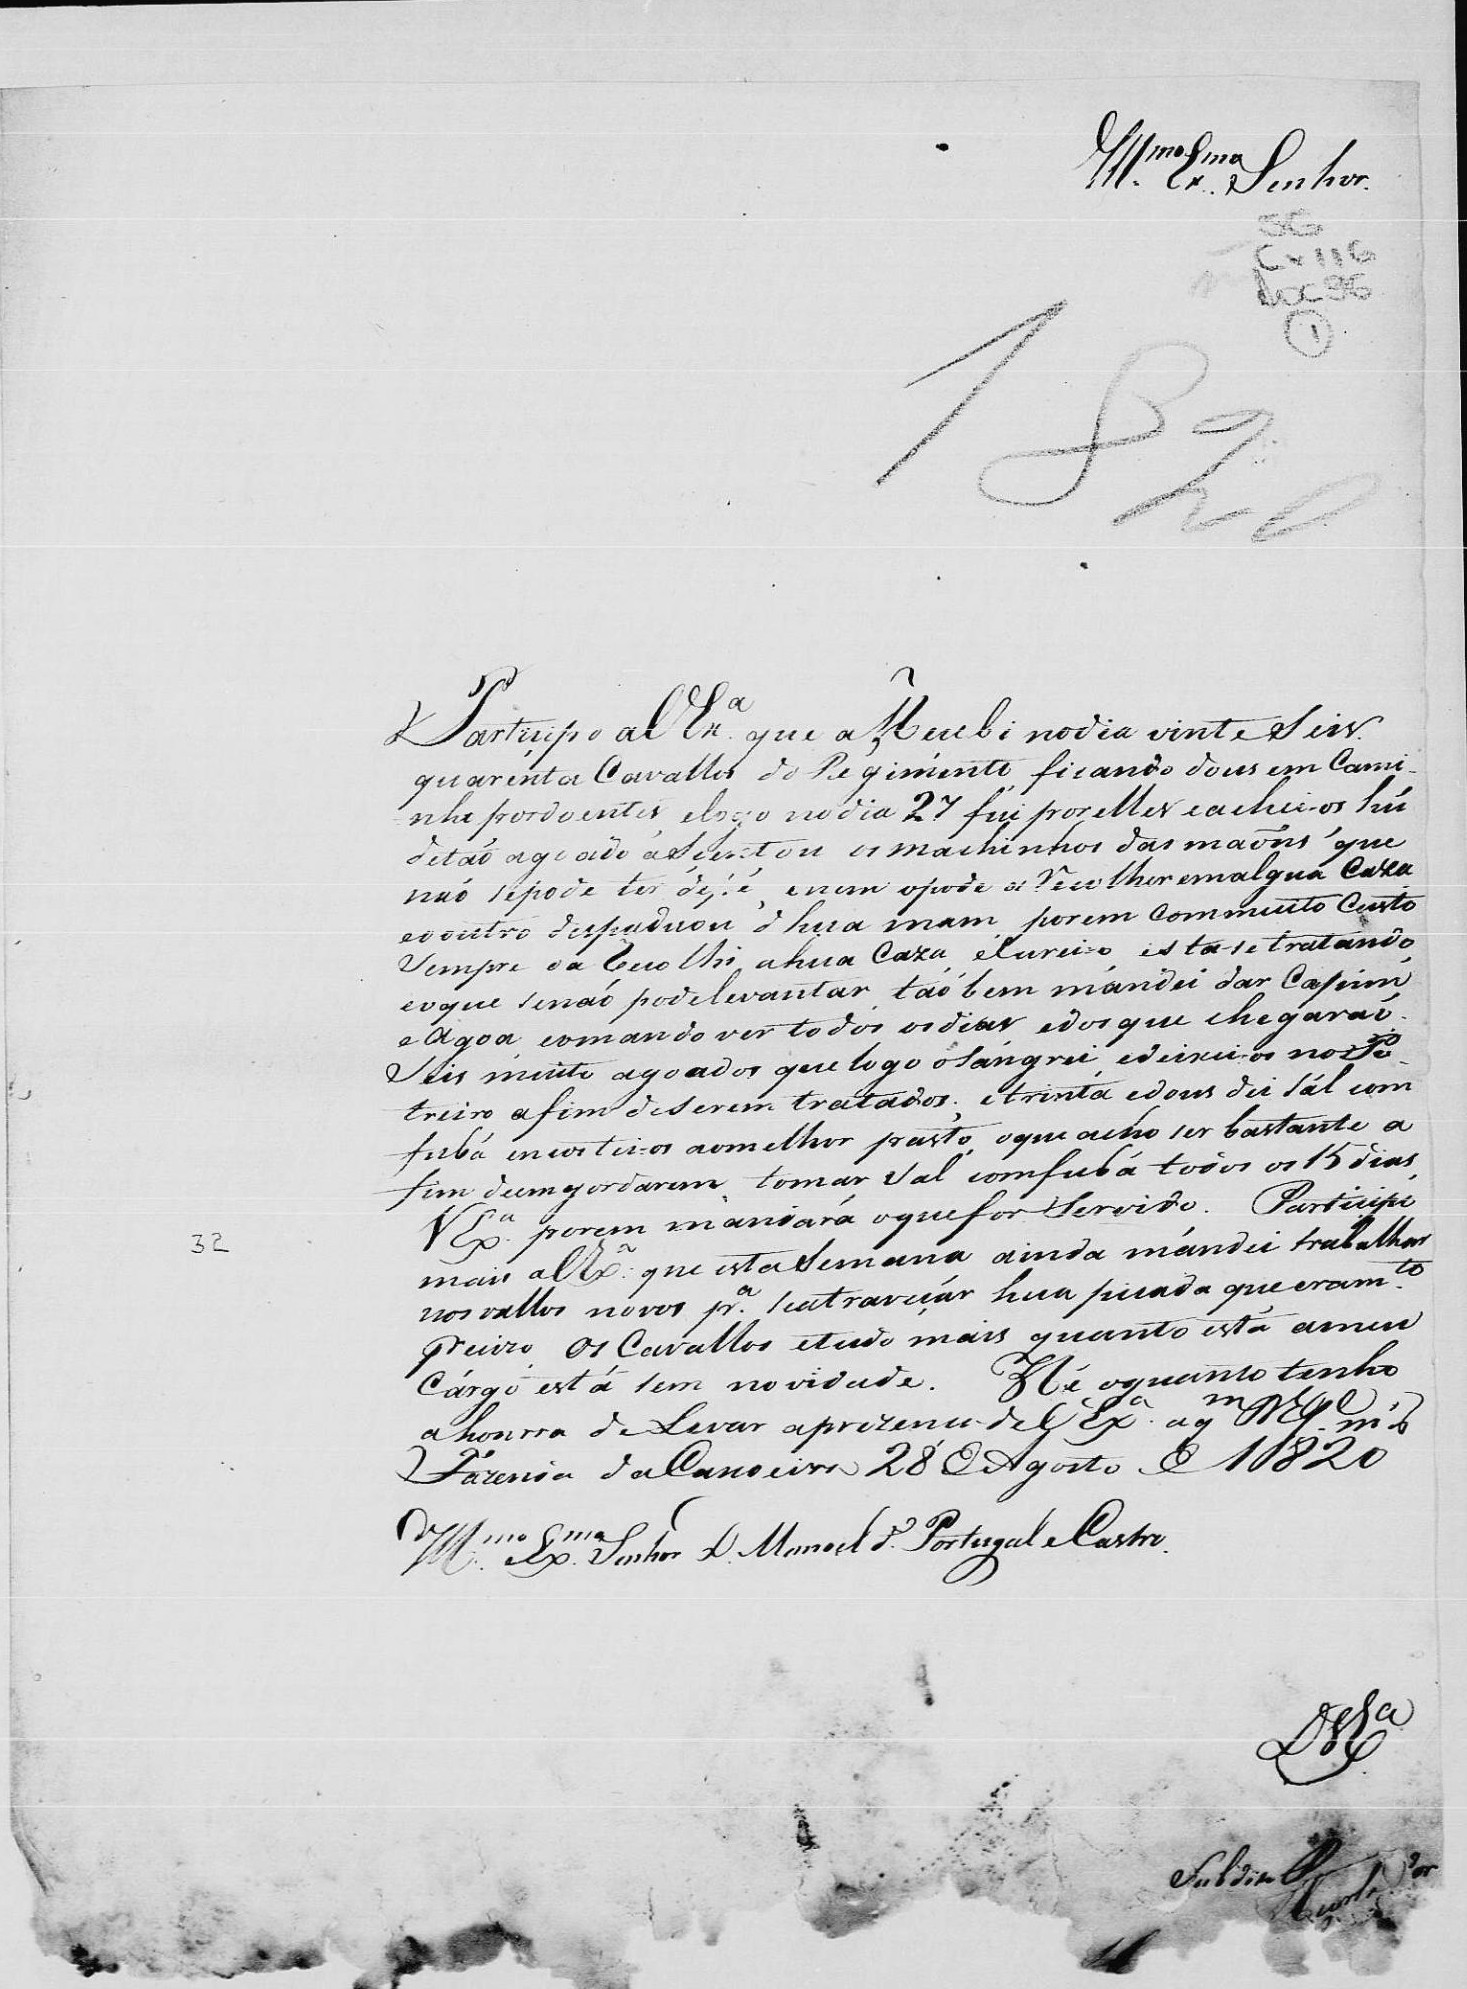 Ill.mo Ex.mo Senhor.
SG
Cx 116
doc 36
1
1820
Participo a V Ex.a que a Recebi no dia vinte Seis
quarenta Cavallos do Regimento, ficando dous em Cami-
nho por doentes, e logo no dia 27 fui por elles e achei-os hú
detaó agoado asentou os machinhos das maõns que
naó sepode ter de pé, e nem opode a Recolher em algua Caza
eooutro d'hua mam, porem com muito Custo
Sempre oa Recolhi ahua Caza, e está-se tratando
eoque senaó pode levantar, taóbem mandei dar Capim
e Agoa, e mando ver todos os dias edos que chegaraó
Seis muito agoados que logo osangrei, edeixei-os no Po-
treiro afim de serem tratados, etrinta edous dei Sál com
fubá encostei-os aomelhor pasto, oque acho ser bastante a
fim deemgordarem, tomar Sal comfubá todos os 15 dias
V Ex.a porem mandará oquefor Servido. Participo
mais a V Ex.a que esta Semana ainda mandei trabalhar
nos vallos novos p.a seatravecár hua picada que era m.to
precizo Os Cavallos etudo mais quanto está ameu
Cárgo está sem novidade. Hé oquanto tenho
ahonrra de Levar aprezenca de V Ex.a
32
Fazenda da Canoeira 28 de Agosto de 1820
Ill.mo e Ex.mo Senhor D. Manoel de Portugal e Castro.
De V Ex.a
Subdito